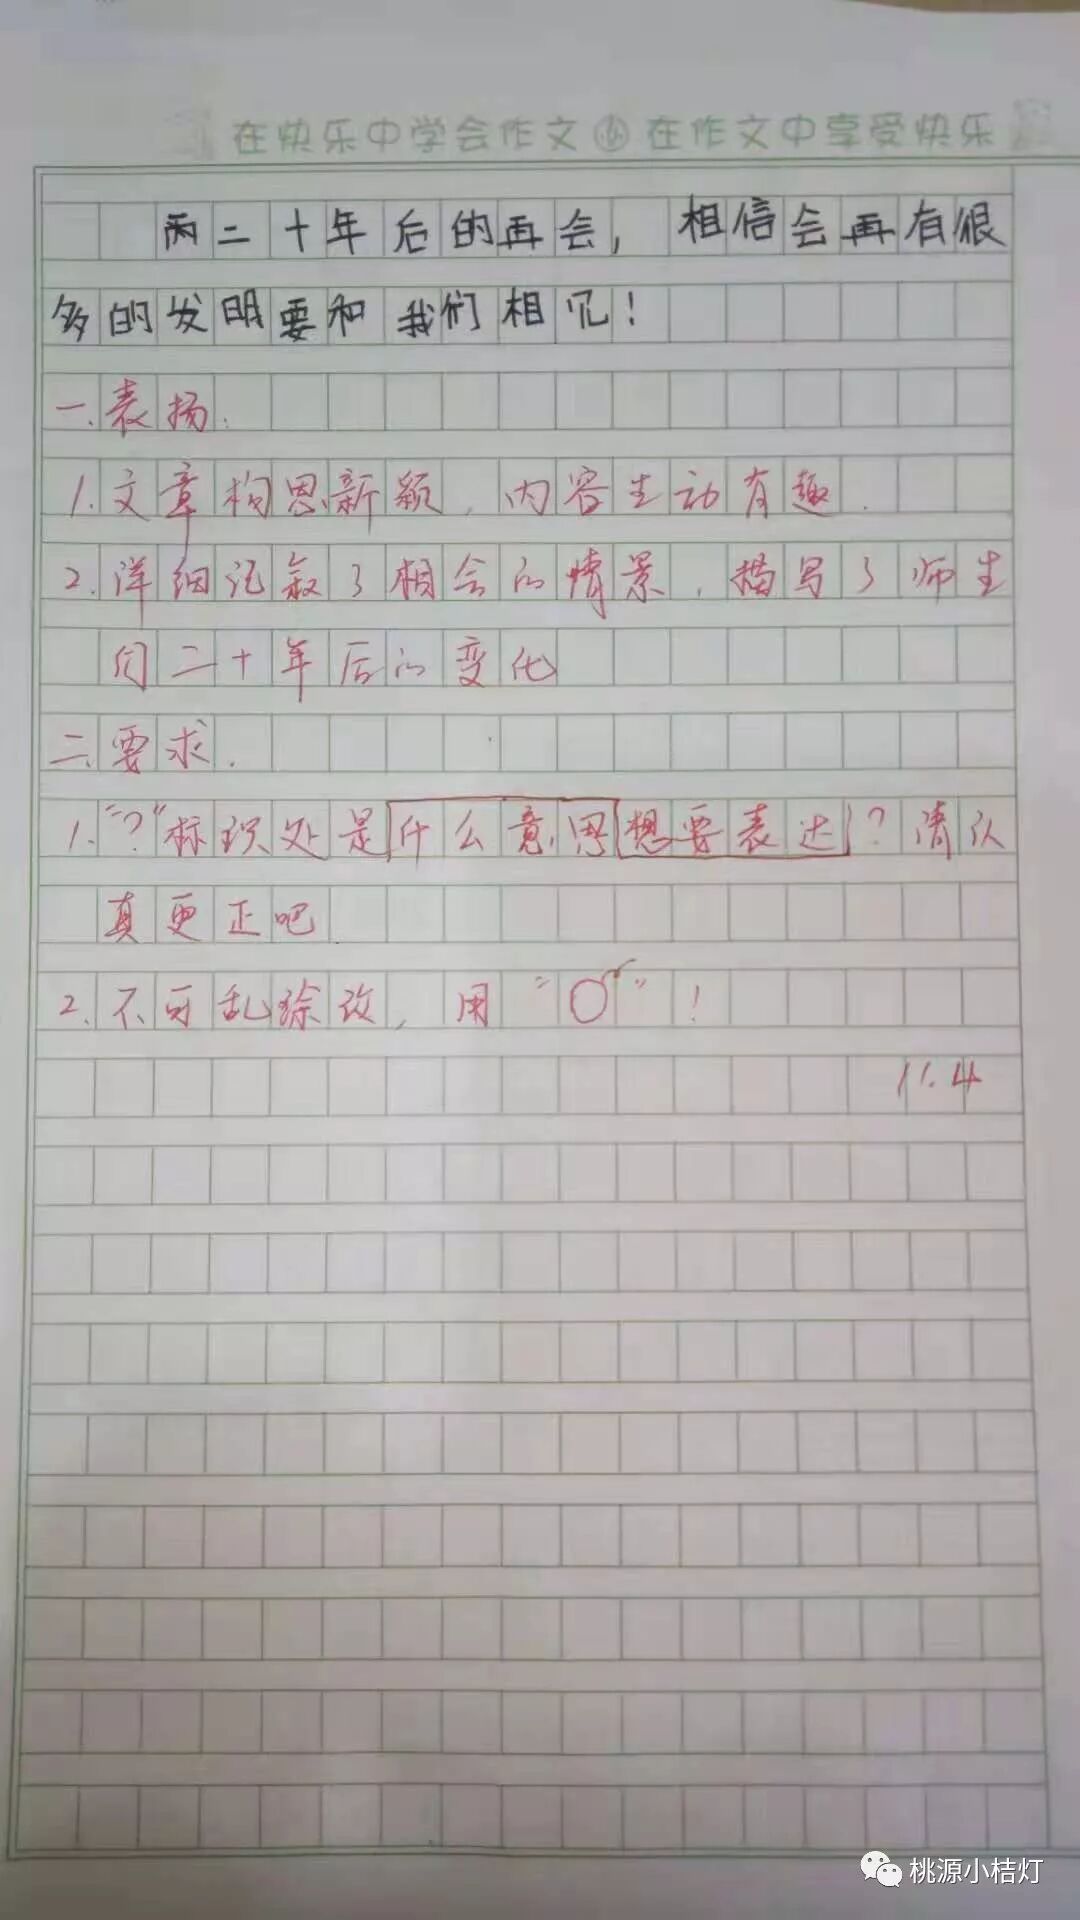 在快乐中学会作文 在作文中享受快乐
两二十年后的再会，相信会再有很
多的发明要和我们相见！
一.表扬.
1.文章构思新颖，内容生动有趣.
2.详细记叙了相会的情景，描写了师生
间二十年后的变化
二.要求.
1."?"标识处是什么意思想要表达?请认
真更正吧.
2.不可乱涂改，用"O"！
11.4
桃源小桔灯